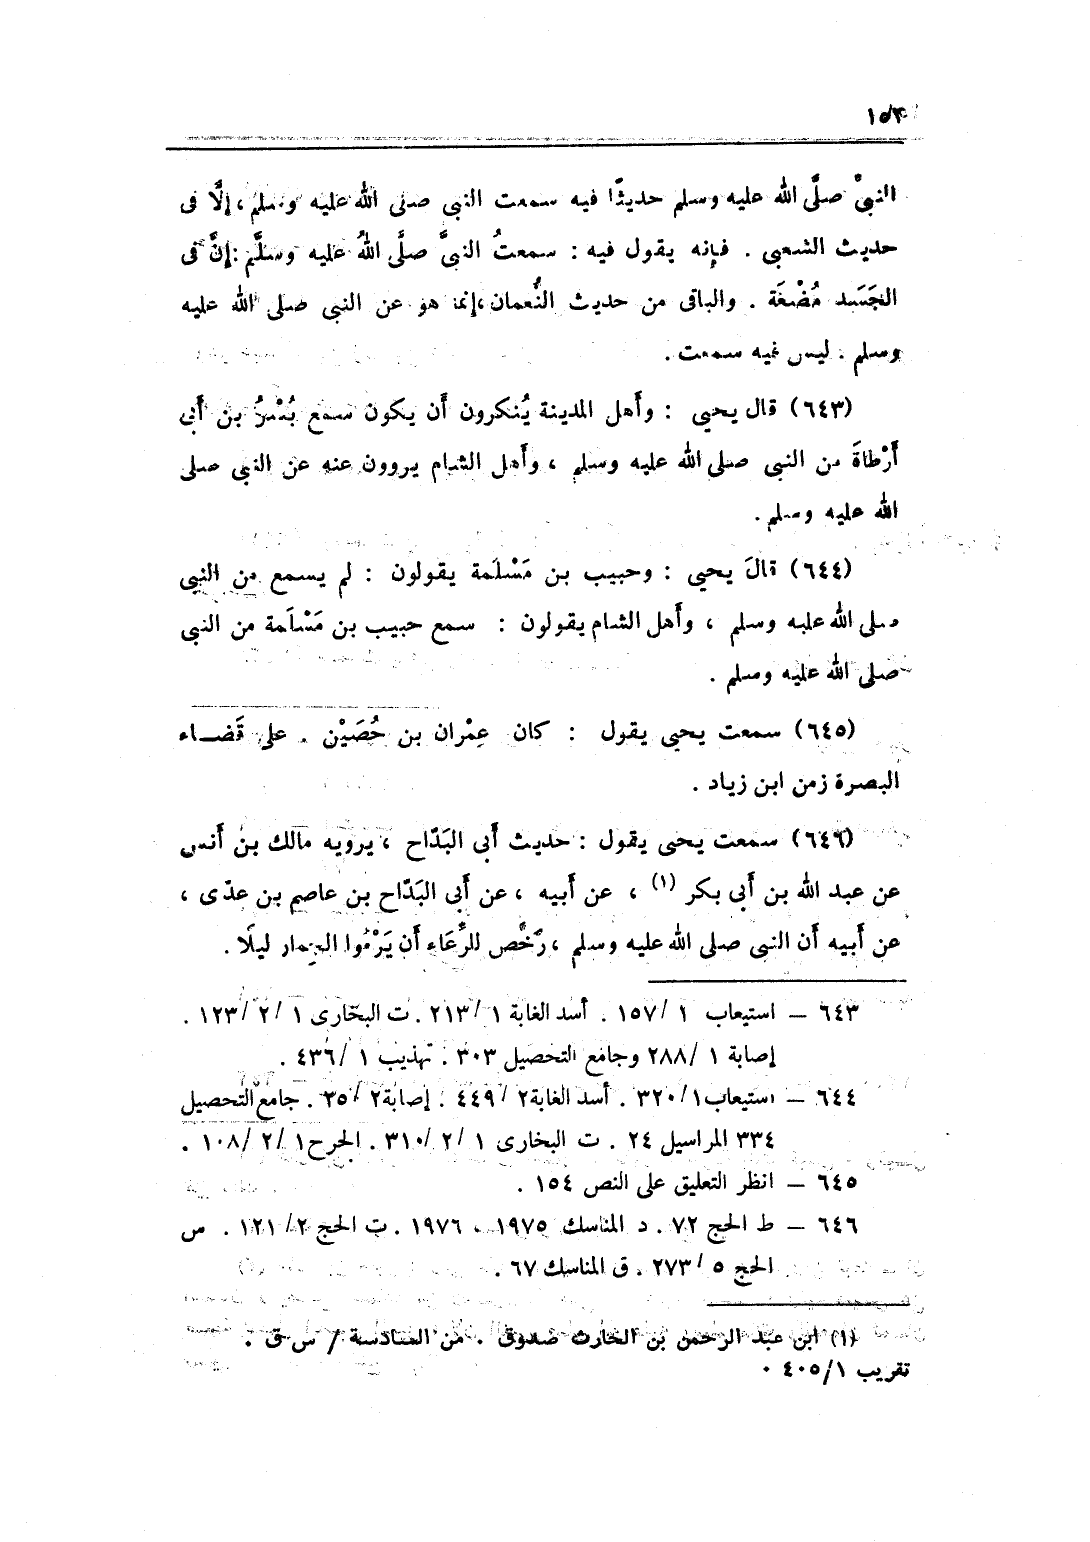 ١٥٣
النبيَّ صلَّى الله عليه وسلم حديثًا فيه سمعت النبي صلى الله عليه وسلم ، إلَّا فى
حديث الشعبي . فإنه يقول فيه : سمعتُ النبيَّ صلَّى اللهُ عليه وسلَّم : إنَّ فى
الجَسَد مُضْغَة . والباقى من حديث النُّعمان ، إنما هو عن النبي صلى الله عليه
وسلم . ليس فيه سمعت .
(٦٤٣) قال يحيى : وأَهل المدينة يُنكرون أَن يكون سمع بُسْرُ بن أَبى
أَرْطاةَ من النبي صلى الله عليه وسلم ، وأَهل الشام يروون عنه عن النبى صلى
الله عليه وسلم .
(٦٤٤) قالَ يحيي : وحبيب بن مَسْلَمة يقولون : لم يسمع من النبي
صلى الله عليه وسلم ، وأَهل الشام يقولون : سمع حبيب بن مَسْلَمة من النبي
صلى الله عليه وسلم .
(٦٤٥) سمعت يحيى يقول : كان عِمْران بن حُصَيْن . على قَضـــاء
البصرة زمن ابن زياد .
(٦٤٦) سمعت يحيى يقول : حديث أَبى البَدّاح ، يرويه مالك بن أَنس
عن عبد الله بن أَبى بكر (١) ، عن أَبيه ، عن أَبى البَدّاح بن عاصم بن عدّى ،
عن أَبيه أَن النبي صلى الله عليه وسلم ، رَخَّص للرِّعَاء أَن يَرْمُوا الجِمار ليلًا .
٦٤٣ – استيعاب ١ /١٥٧ . أسد الغابة ١ /٢١٣ . ت البخارى ١ /٢ /١٢٣ .
إصابة ١ /٢٨٨ وجامع التحصيل ٣٠٣ . تهذيب ١ /٤٣٦ .
٦٤٤ – استيعاب١ /٣٢٠ . أسد الغابة٢ /٤٤٩ . إصابة٢ /٣٥ . جامع التحصيل
٣٣٤ المراسيل ٢٤ . ت البخارى ١ /٢ /٣١٠ . الجرح١ /٢ /١٠٨ .
٦٤٥ – انظر التعليق على النص ١٥٤ .
٦٤٦ – ط الحج ٧٢ . د المناسك ١٩٧٥ ، ١٩٧٦ . ت الحج ٢ /١٢١ . س
الحج ٥ /٢٧٣ . ق المناسك ٦٧ .
(١) ابن عبد الرحمن بن الحارث صدوق . من السادسة / س ق .
تقريب ٤٠٥/١ .